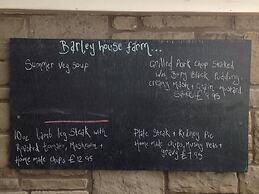 Barley house farm...
Summer veg soup
Grilled Pork Chop Stacked
with Bury Black Pudding
creamy Mash + Grain mustard
Sauce £9.95
10oz Lamb leg Steak with
Roasted tomato, Mushroom +
Home made chips £12.95
Plate Steak + Kidney Pie
Home made chips, mushy Peas +
gravy £7.95